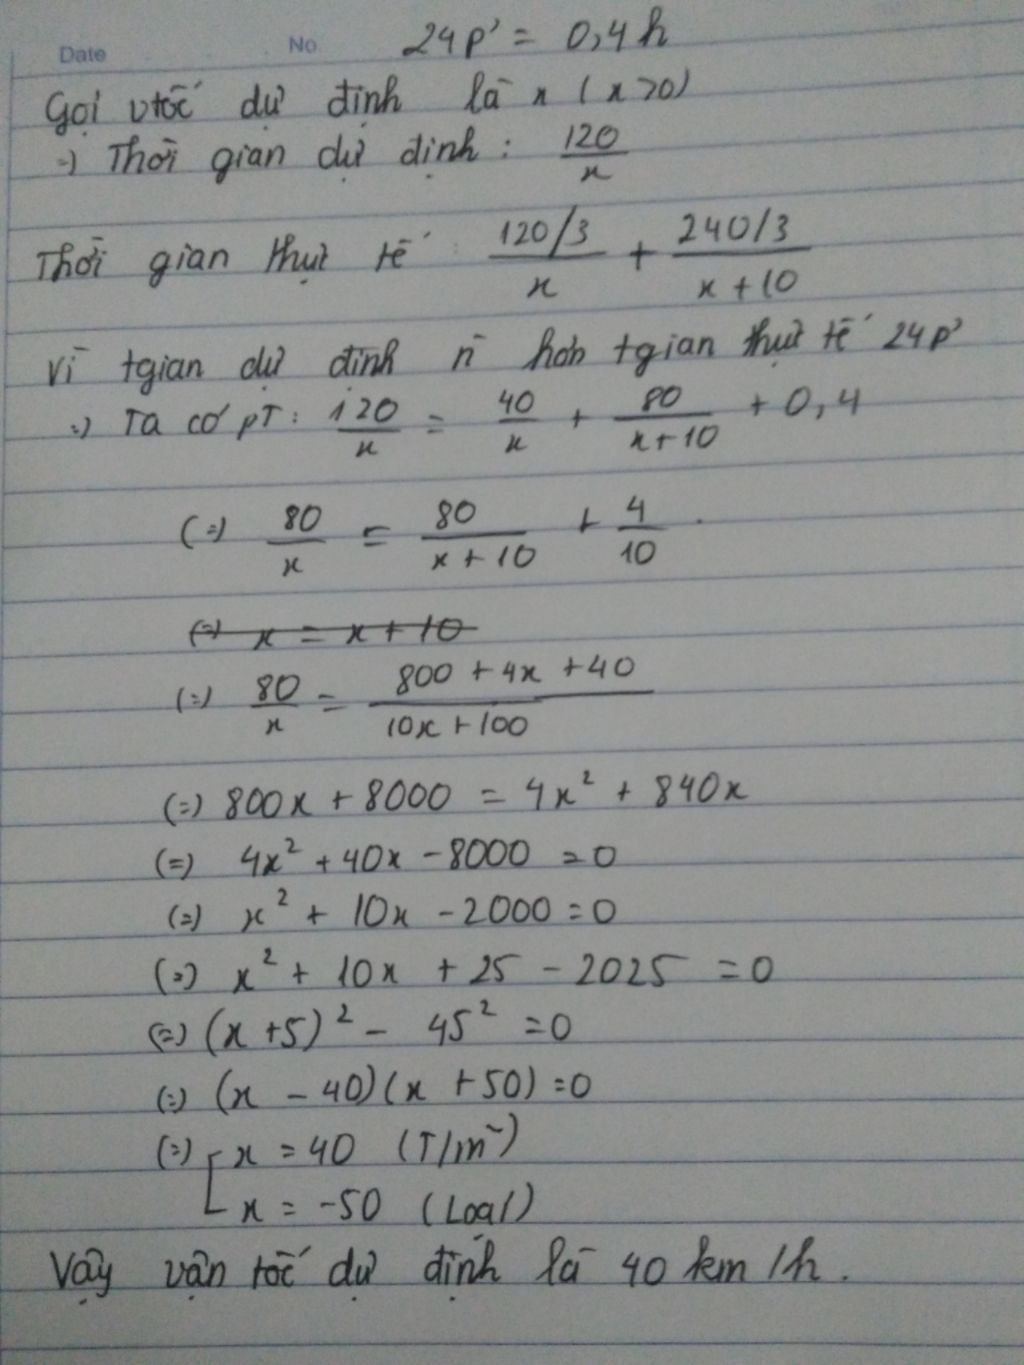 Date No 24p' = 0,4h
Gọi vtốc dự định là x (x>0)
=) Thời gian dự định : 120/x
Thời gian thực tế : (120/3)/x + (240/3)/(x+10)
Vì tgian dự định n` hơn tgian thực tế 24p'
=) Ta có pT: 120/x = 40/x + 80/(x+10) + 0,4
(=) 80/x = 80/(x+10) + 4/10
(=) x = x + 10
(=) 80/x = (800 + 4x + 40)/(10x + 100)
(=) 800x + 8000 = 4x² + 840x
(=) 4x² + 40x - 8000 = 0
(=) x² + 10x - 2000 = 0
(=) x² + 10x + 25 - 2025 = 0
(=) (x + 5)² - 45² = 0
(=) (x - 40)(x + 50) = 0
(=) [ x = 40 (T/m~)
x = -50 (Loại)
Vậy vận tốc dự định là 40 km/h.